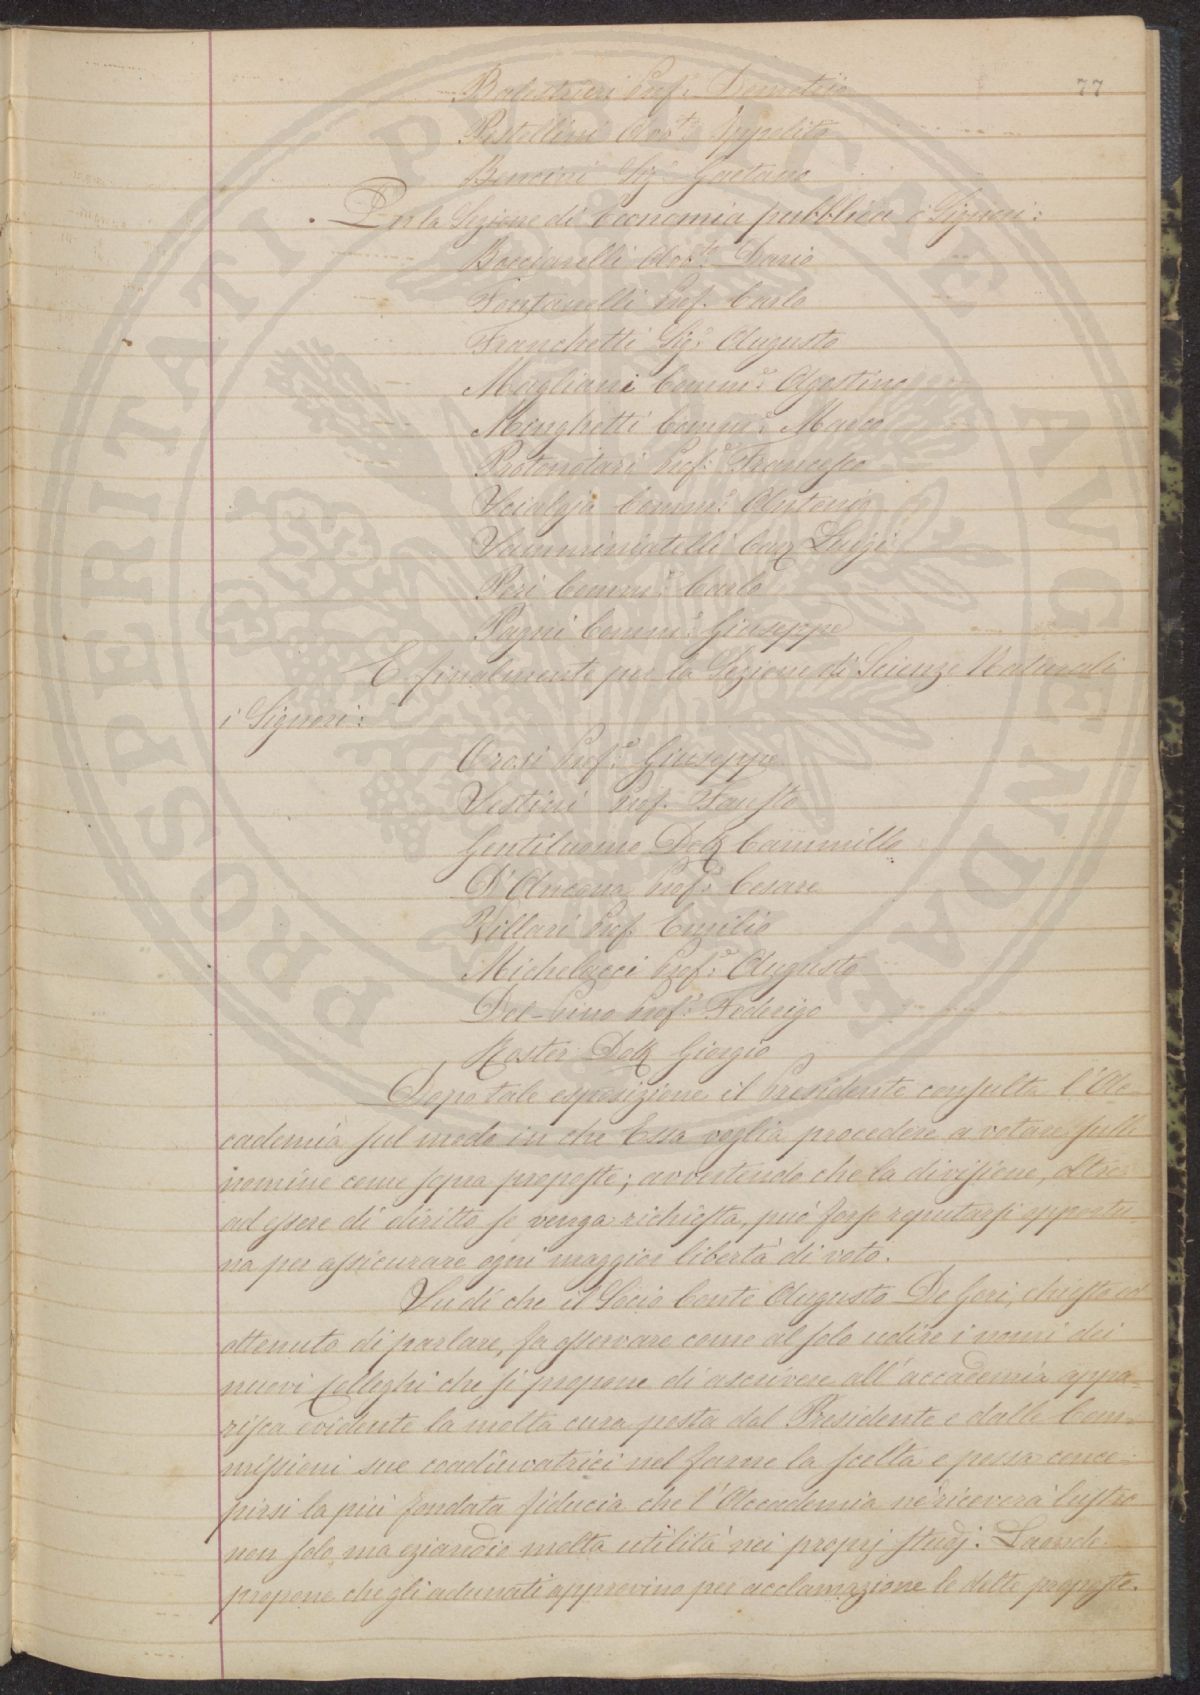 77
Balestrieri Prof.e Demetrio
Pestellini Avv.to Ippolito
Bencini Sig.e Gaetano
Per la Sezione di Economia pubblica i Signori:
Bosciarelli Avv.to Dario
Fontanelli Prof. Carlo
Franchetti Sig.e Augusto
Magliani Comm.e Agostino
Minghetti Comm.e Marco
Protonotari Prof.e Francesco
Scialoja Comm.e Antonio
Samminiatelli Cav Luigi
Peri Comm.e Carlo
Pagni Comm.e Giuseppe
E finalmente per la Sezione di Scienze Naturali
i Signori:
Orosi Prof.e Giuseppe
Sestini Prof. Fausto
Gentiluomo Dott Cammillo
D'Ancona Prof.e Cesare
Villari Prof. Emilio
Michelacci Prof.e Augusto
Del-pino Prof.e Federigo
Roster Dott Giorgio
Dopo tale esposizione il Presidente consulta l'Ac-
cademia sul modo in che Essa voglia procedere a votare sulle
nomine come sopra proposte; avvertendo che la divisione, oltre
ad essere di diritto se venga richiesta, può forse reputarsi opportu-
na per assicurare ogni maggior libertà di voto.
Sudì che il Socio Conte Augusto De Gori, chiesto ed
ottenuto di parlare, fa osservare come al solo udire i nomi dei
nuovi Colleghi che si propone di ascrivere all'accademia appa-
risca evidente la molta cura posta dal Presidente e dalle Com-
missioni sue coadiuvatrici nel farne la scelta e possa conce-
pirsi la più fondata fiducia che l'Accademia ne riceverà lustro
non solo, ma eziandio molta utilità nei proprj studj. Laonde
propone che gli adunati approvino per acclamazione le dette proposte.
PROSPERITATI PUBLICAE AVGENDAE